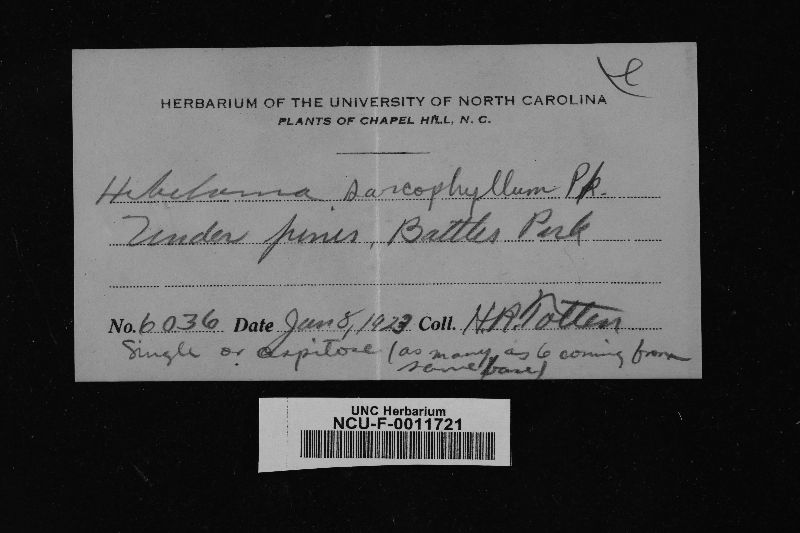 HERBARIUM OF THE UNIVERSITY OF NORTH CAROLINA
PLANTS OF CHAPEL HILL, N. C.
Hebeloma sarcophyllum Pk.
Under pines, Battles Park
No. 6036 Date Jan 8, 1923 Coll. H.R. Totten
Single or cespitose (as many as 6 coming from
same base)
UNC Herbarium
NCU-F-0011721